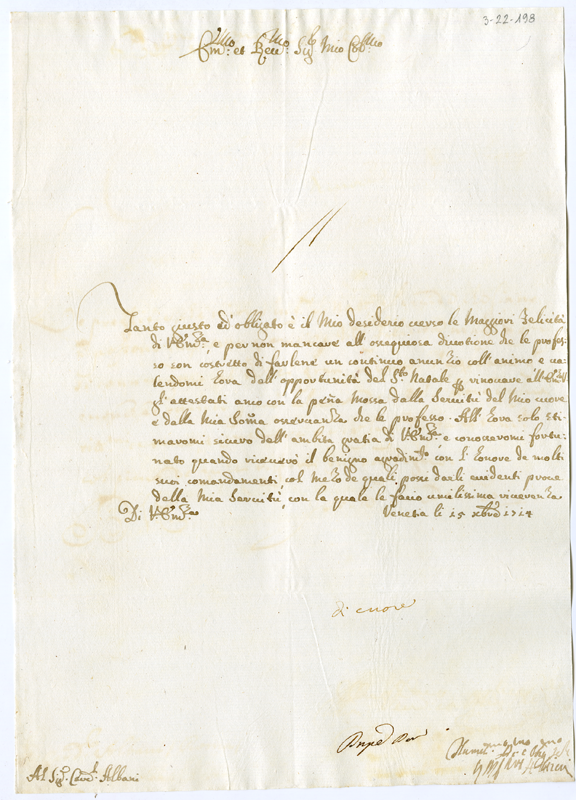 3-22-198
Em:mo et Reu:mo Sig:e Mio Col:mo
Tanto giusto ed obligato è il Mio desiderio uerso le Maggiori Felicità
di V:Em:za, e per non mancare all'ossequiosa diuotione che le profes-
so son costretto di farlene un continuo anuntio coll'animo e ua-
lendomi hora dell'opportunità del S:to Natale rinouare all'
gl'attestati anco con la pena Mossa dalla Seruitù del Mio cuore
e dalla Mia Somma osseruanza che le professo. All'hora solo sti-
maromi sicuro dell'ambita gratia di V:Em:za, e conoscerome fortu-
nato quando riceuerò il benigno agradim:to con l'honore de molti
suoi comandamenti, col Mezo de quali possi darli euidenti proue
della Mia Seruitù, con la quale le facio umilissima riuerenza
Di V:Em:za Venetia li 15 xbre 1714
di cuore
Al Sig:r Card:l Albani